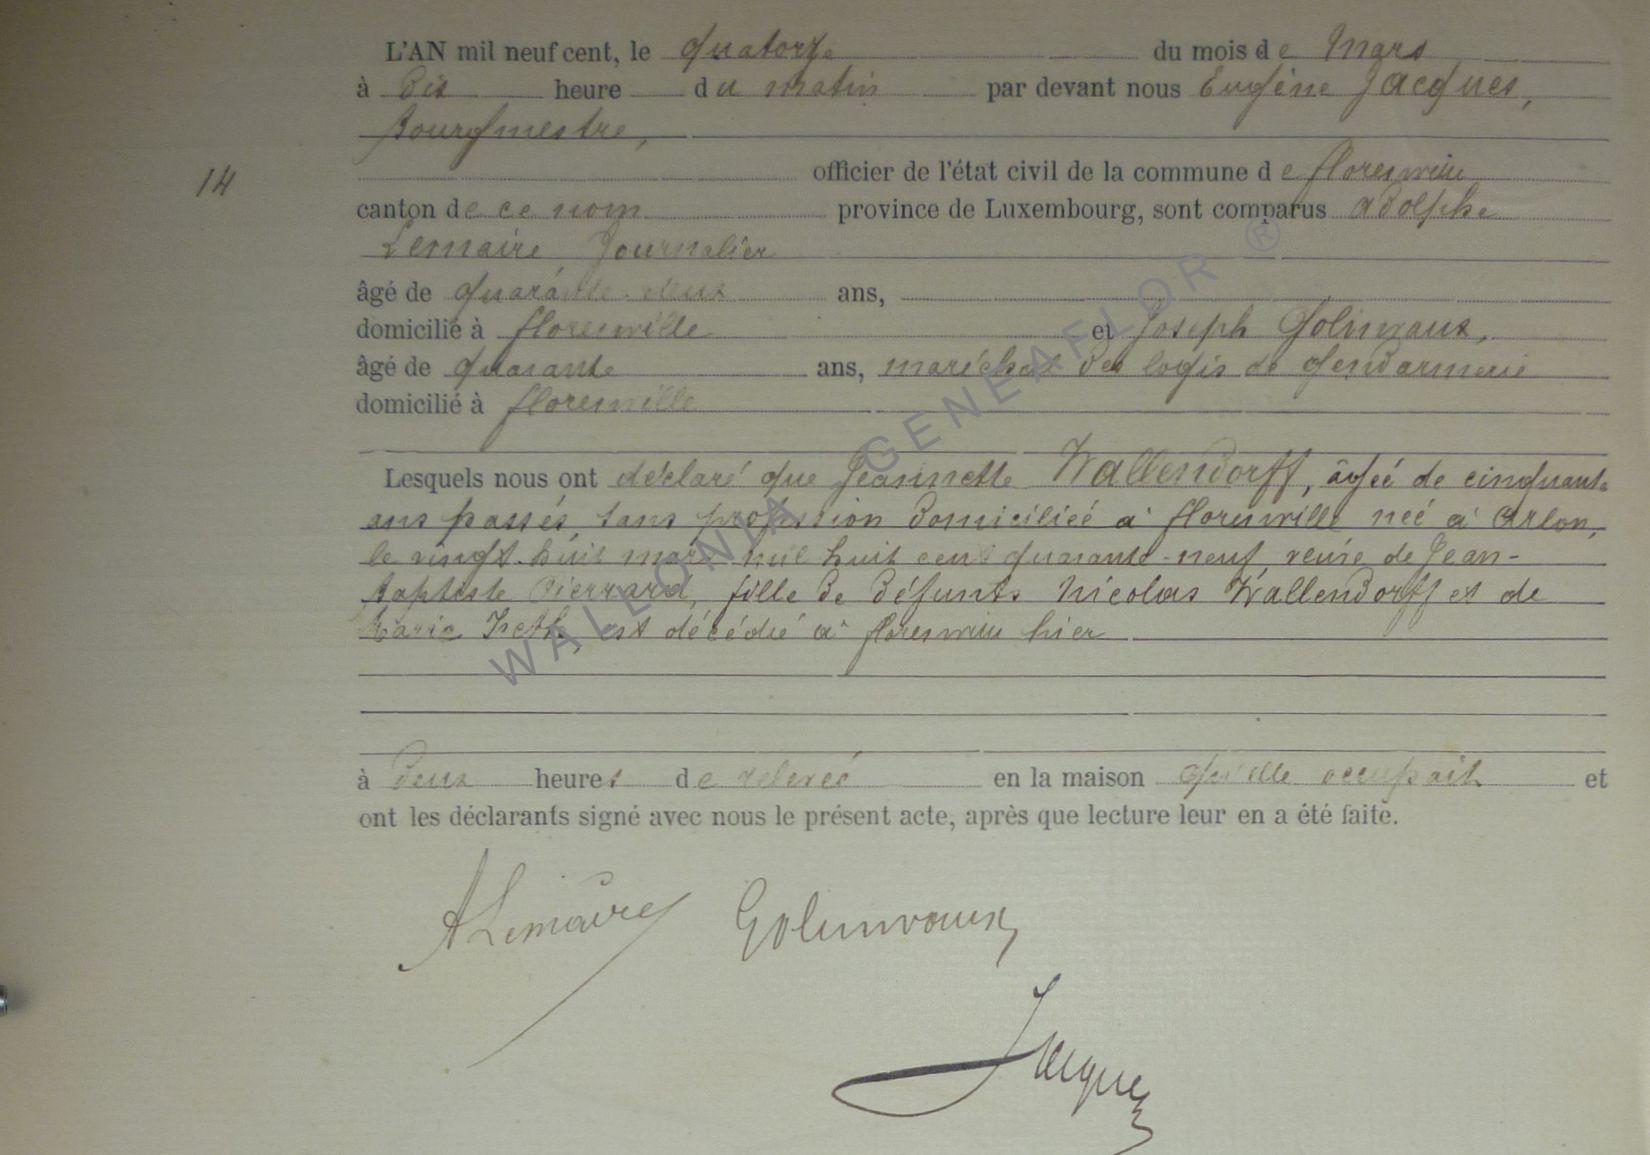 L'AN mil neuf cent, le quatorze du mois de Mars
à Dix heure du matin par devant nous Eugène Jacques,
Bourgmestre,
14
officier de l'état civil de la commune de florenville
canton de ce nom province de Luxembourg, sont comparus adolphe
Lemaire Journalier
âgé de quarante-deux ans,
domicilié à florenville et Joseph Golinvaux,
âgé de quarante ans, maréchal des logis de gendarmerie
domicilié à florenville
Lesquels nous ont déclaré que Jeannette Wallendorff, âgée de cinquante
ans passés, sans profession domiciliée à florenville née à Arlon,
le vingt-huit mars mil huit cent quarante-neuf, veuve de Jean-
Baptiste Pierrard, fille de défunts Nicolas Wallendorff et de
Marie est décédée à florenville hier
à Deux heures de relevée en la maison qu'elle occupait et
ont les déclarants signé avec nous le présent acte, après que lecture leur en a été faite.
ALemaire Golinvaux
Jacques
WALLONIA GENEAFLOR ®